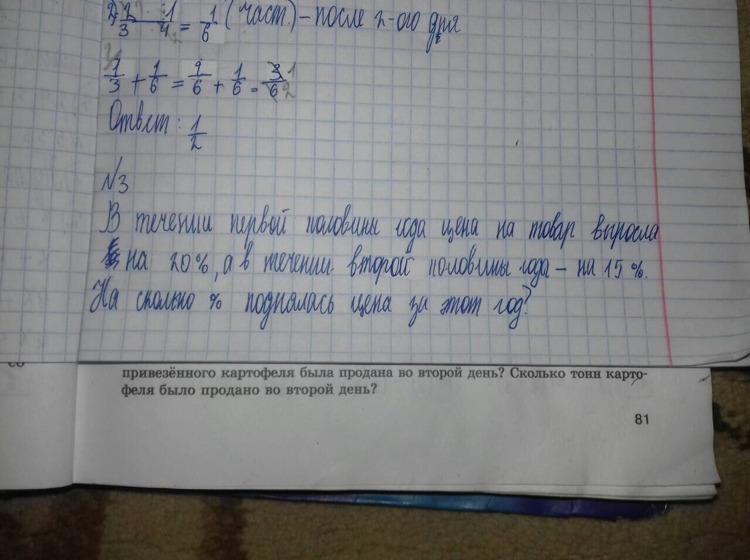 2/3 1/4 = 1/6 (част.) – после 2-ого дня
1/3 + 1/6 = 2/6 + 1/6 = 3/6 1/2
Ответ: 1/2
№3
В течении первой половины года цена на товар выросла
на 20%, а в течении второй половины года – на 15%.
На сколько % поднялась цена за этот год?
привезённого картофеля была продана во второй день? Сколько тонн карто-
феля было продано во второй день?
81